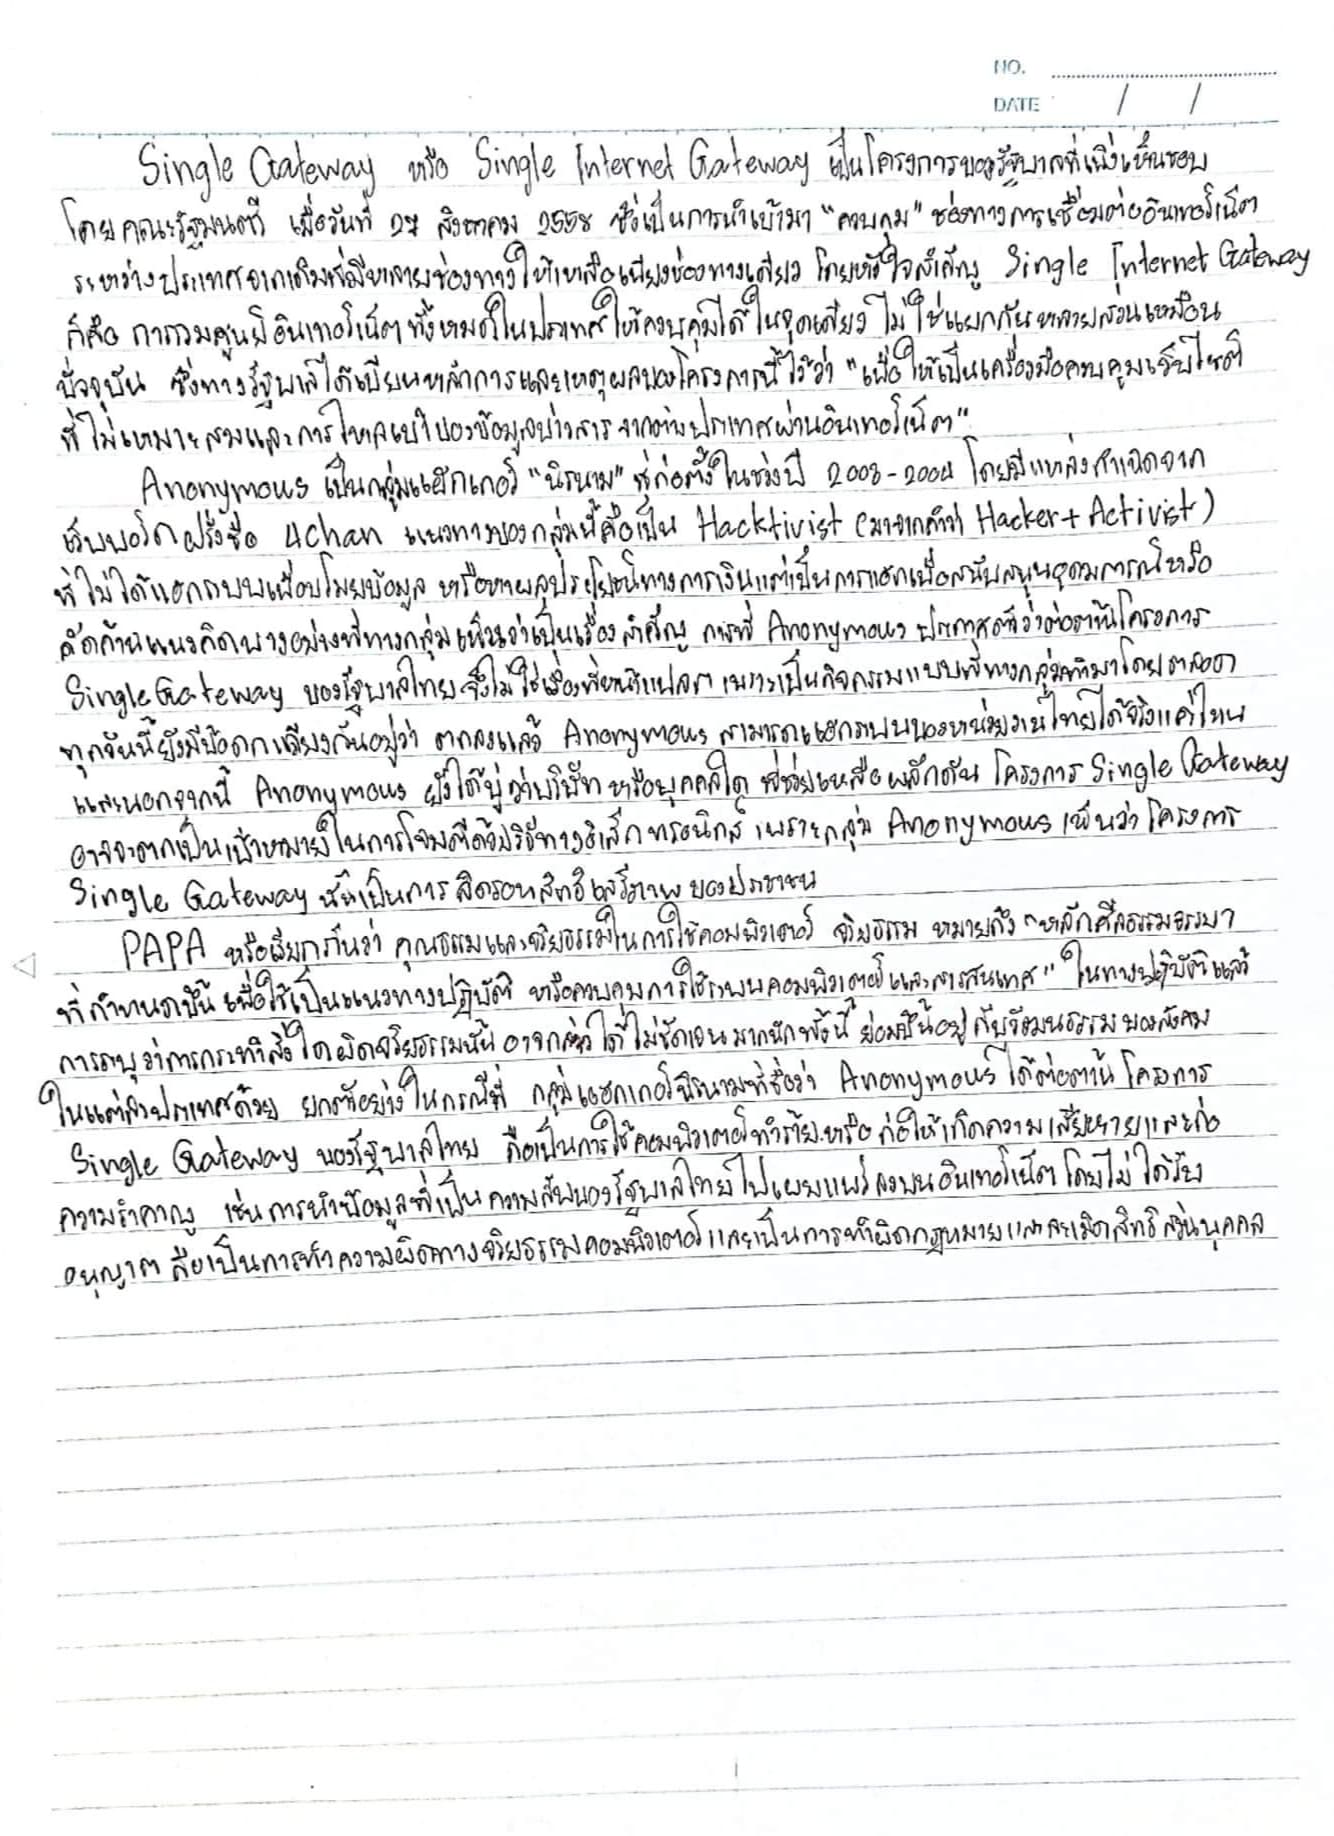 NO.
DATE / /
Single Gateway หรือ Single Internet Gateway เป็นโครงการของรัฐบาลที่เพิ่งเห็นชอบ
โดยคณะรัฐมนตรี เมื่อวันที่ 27 สิงหาคม 2558 ซึ่งเป็นการนำเข้ามา "ควบคุม" ช่องทางการเชื่อมต่ออินเทอร์เน็ต
ระหว่างประเทศจากเดิมที่มีหลายช่องทางให้เหลือเพียงช่องทางเดียว โดยหัวใจสำคัญ Single Internet Gateway
ก็คือ การรวมศูนย์อินเทอร์เน็ตทั้งหมดในประเทศให้ควบคุมได้ในจุดเดียว ไม่ใช่แยกกันหลายส่วนเหมือน
ปัจจุบัน ซึ่งทางรัฐบาลได้เขียนหลักการและเหตุผลของโครงการนี้ไว้ว่า "เพื่อให้เป็นเครื่องมือควบคุมเว็บไซต์
ที่ไม่เหมาะสมและการไหลเข้าของข้อมูลข่าวสารจากต่างประเทศผ่านอินเทอร์เน็ต"
Anonymous เป็นกลุ่มแฮ็กเกอร์ "นิรนาม" ที่ก่อตั้งในช่วงปี 2003-2004 โดยมีแหล่งกำเนิดจาก
เว็บบอร์ดฝรั่งชื่อ 4chan แนวทางของกลุ่มนี้คือเป็น Hacktivist (มาจากคำว่า Hacker + Activist)
ที่ไม่ได้แฮกระบบเพื่อขโมยข้อมูล หรือหาผลประโยชน์ทางการเงินแต่เป็นการแฮกเพื่อสนับสนุนอุดมการณ์หรือ
คัดค้านแนวคิดบางอย่างที่ทางกลุ่มเห็นว่าเป็นเรื่องสำคัญ การที่ Anonymous ประกาศตัวว่าต่อต้านโครงการ
Single Gateway ของรัฐบาลไทยจึงไม่ใช่เรื่องที่น่าแปลก เพราะเป็นกิจกรรมแบบที่ทางกลุ่มทำมาโดยตลอด
ทุกวันนี้ยังมีข้อถกเถียงกันอยู่ว่า ตกลงแล้ว Anonymous สามารถแฮกระบบของหน่วยงานไทยได้จริงแค่ไหน
และนอกจากนี้ Anonymous ยังได้ขู่ว่าบริษัท หรือบุคคลใด ที่ช่วยเหลือผลักดัน โครงการ Single Gateway
อาจจะตกเป็นเป้าหมายในการโจมตีด้วยวิธีทางอิเล็กทรอนิกส์ เพราะกลุ่ม Anonymous เห็นว่า โครงการ
Single Gateway นั้นเป็นการ ลิดรอนสิทธิเสรีภาพ ของประชาชน
PAPA หรือเรียกกันว่า คุณธรรมและจริยธรรมในการใช้คอมพิวเตอร์ จริยธรรม หมายถึง "หลักศีลธรรมจรรยา
ที่กำหนดขึ้น เพื่อใช้เป็นแนวทางปฏิบัติ หรือควบคุมการใช้ระบบคอมพิวเตอร์และสารสนเทศ" ในทางปฏิบัติแล้ว
การระบุว่าการกระทำสิ่งใดผิดจริยธรรมนั้น อาจกล่าวได้ไม่ชัดเจนมากนัก ทั้งนี้ ย่อมขึ้นอยู่กับวัฒนธรรมของสังคม
ในแต่ละประเทศด้วย ยกตัวอย่าง ในกรณีที่ กลุ่มแฮกเกอร์นิรนามที่ชื่อว่า Anonymous ได้ต่อต้าน โครงการ
Single Gateway ของรัฐบาลไทย ถือเป็นการใช้คอมพิวเตอร์ทำร้าย หรือ ก่อให้เกิดความเสียหายและก่อ
ความรำคาญ เช่น การนำข้อมูลที่เป็นความลับของรัฐบาลไทยไปเผยแพร่ลงบนอินเทอร์เน็ตโดยไม่ได้รับ
อนุญาต ถือเป็นการทำความผิดทางจริยธรรมคอมพิวเตอร์ และเป็นการทำผิดกฎหมายและละเมิดสิทธิส่วนบุคคล